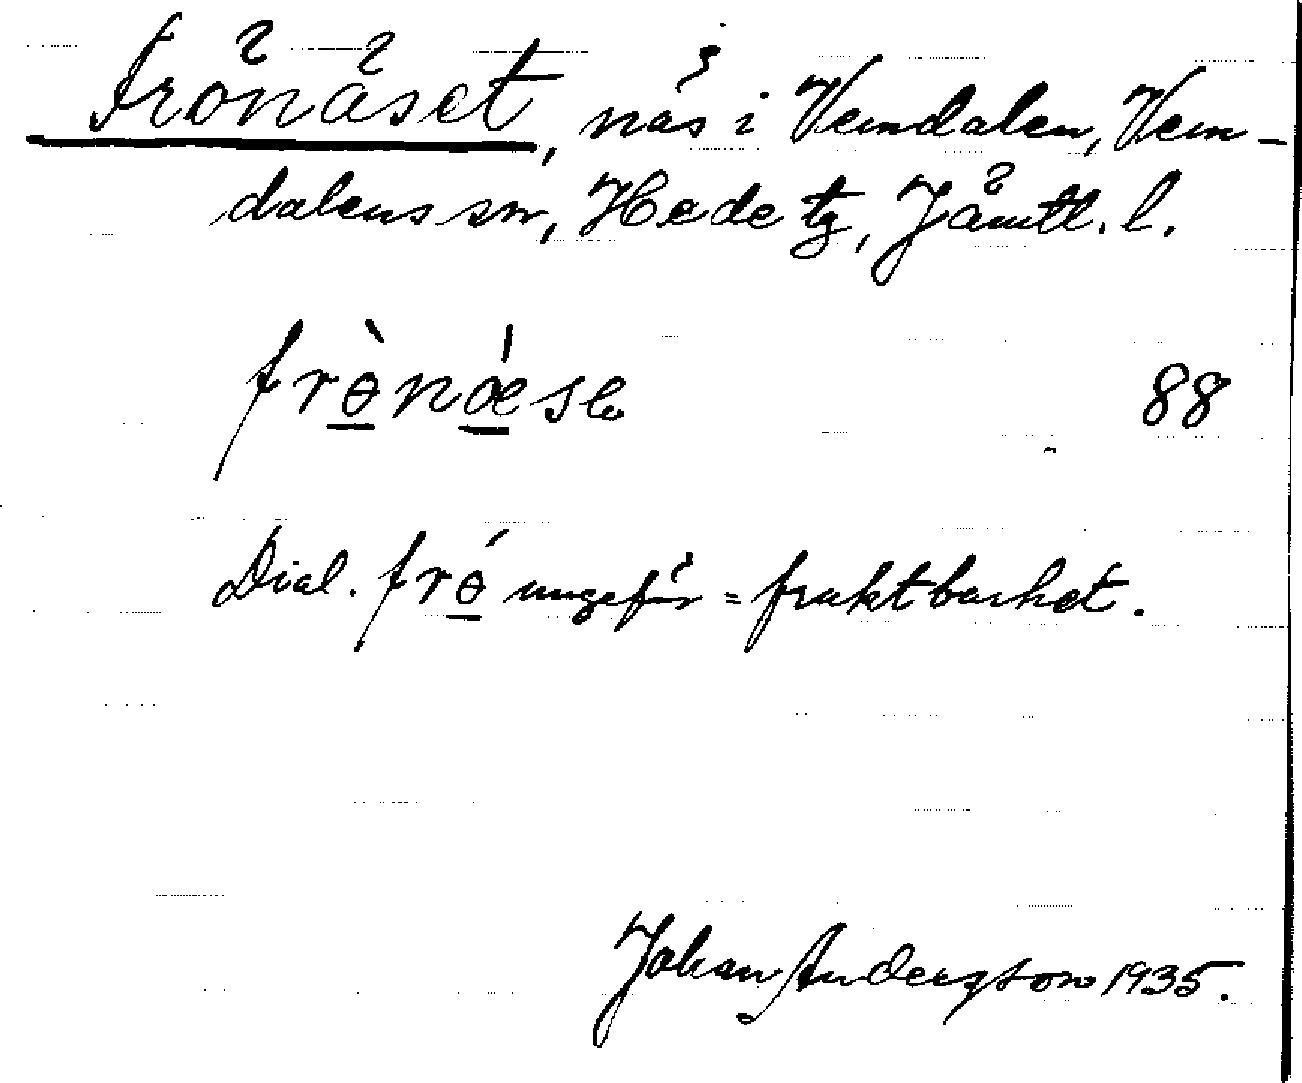 Frönäset, näs i Vemdalen, Vem-
dalens sn, Hede tg, Jämtl. l.
frὸ̱nǽ̱se 88
Dial. frǿ̱ ungefär = fruktbarhet.
Johan Andersson 1935.